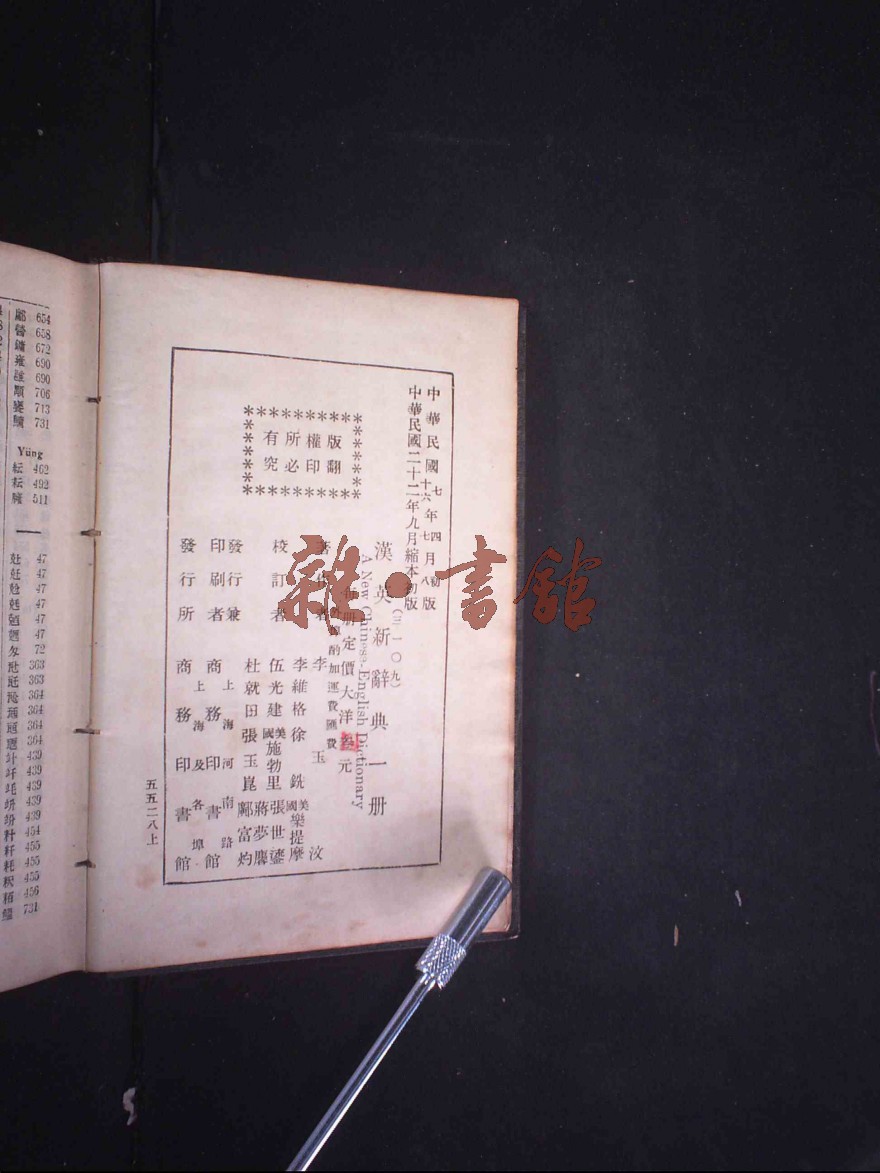 中華民國七年四月初版
中華民國十六年七月八版
中華民國二十二年九月縮本初版
(三一〇九)
漢英新辭典一册
A New Chinese-English Dictionary
每册定價大洋叁元
外埠酌加運費匯費
版權所有
翻印必究
著作者 李玉汶
校訂者 李維格 徐銑 美國樂提摩
伍光建 美國施勃里 張世鎏
杜就田 張玉崑 蔣夢麐
鄺富灼
發行兼印刷者 上海河南路 商務印書館
發行所 上海及各埠 商務印書館
五五二八上
雜·書館
654
營 658
鏞 672
雍 690
690
顒 706
713
731
Yüng
紜 462
耘 492
511
47
47
47
47
47
47
72
363
363
364
364
364
439
439
439
439
439
454
455
耗 455
455
456
731